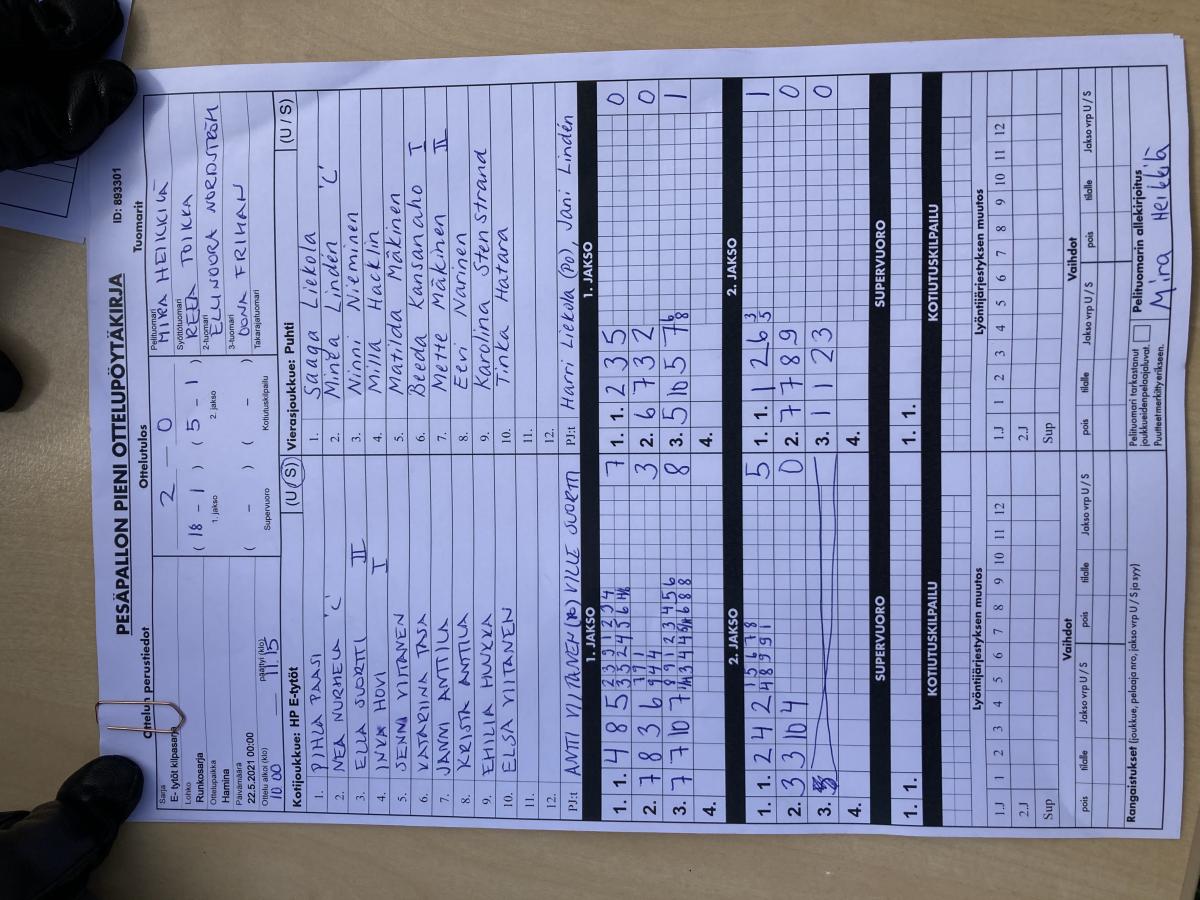 PESÄPALLON PIENI OTTELUPÖYTÄKIRJA
ID: 893301
Ottelun perustiedot
Ottelutulos
Tuomarit
Sarja
E- tytöt kilpasarja
Lohko
Runkosarja
Ottelupaikka
Hamina
Päivämäärä
22.5.2021 00:00
Ottelu alkoi (klo)
päättyi (klo)
10.00
11.15
2 – 0
( 18 – 1 ) ( 5 – 1 )
1. jakso
2. jakso
( – ) ( – )
Supervuoro
Kotiutuskilpailu
Pelituomari
MIRA HEIKKILÄ
Syöttötuomari
REEA TOIKKA
2-tuomari
ELLINOORA NORDSTRÖM
3-tuomari
OONA FRIMAN
Takarajatuomari
Kotijoukkue: HP E-tytöt
(U / S)
1. PIHLA PAASI
2. NEA NURMELA 'C'
3. ELLA SUORTTI II
4. INKA HOVI I
5. SENNI VIITANEN
6. KATARIINA TAJA
7. JANNI ANTTILA
8. KRISTA ANTTILA
9. EMILIA HUKKA
10. ELSA VIITANEN
11.
12.
PJ:t ANTTI VIITANEN VILLE SUORTTI
Vierasjoukkue: Puhti
(U / S)
1. Saaga Liekola
2. Minea Lindén 'C'
3. Ninni Nieminen
4. Milla Hacklin
5. Matilda Mäkinen
6. Beeda Kansanaho I
7. Mette Mäkinen II
8. Eevi Narinen
9. Karolina Stenstrand
10. Tinka Hatara
11.
12.
PJ:t Harri Liekola (PJ), Jani Lindén
1. JAKSO
1. 1. 4 8 5 7
2. 7 8 3 6 3
3. 7 7 10 7 8
4.
1. JAKSO
1. 1. 2 3 5 0
2. 6 7 3 2 0
3. 5 10 5 7 1
4.
2. JAKSO
1. 1. 2 4 2 5
2. 3 3 10 4 0
3.
4.
2. JAKSO
1. 1. 1 2 6 1
2. 7 7 8 9 0
3. 1 1 2 3 0
4.
SUPERVUORO
1. 1.
SUPERVUORO
1. 1.
KOTIUTUSKILPAILU
KOTIUTUSKILPAILU
Lyöntijärjestyksen muutos
1.J 1 2 3 4 5 6 7 8 9 10 11 12
2.J
Sup
Lyöntijärjestyksen muutos
1.J 1 2 3 4 5 6 7 8 9 10 11 12
2.J
Sup
Vaihdot
pois tilalle Jakso vrp U / S pois tilalle Jakso vrp U / S
Vaihdot
pois tilalle Jakso vrp U / S pois tilalle Jakso vrp U / S
Rangaistukset (joukkue, pelaaja nro, jakso vrp U / S ja syy)
Pelituomari tarkastanut
joukkueidenpelaajaluvat.
Puutteet merkitty erikseen.
Pelituomarin allekirjoitus
Mira Heikkilä